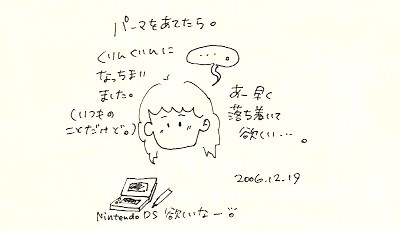 パーマをあてたら。
くりんくりんに
なっちまい
ました。
(いつもの
ことだけど。)
・・・。
あー早く
落ち着いて
欲しい…。
2006.12.19
Nintendo DS 欲しいなー。